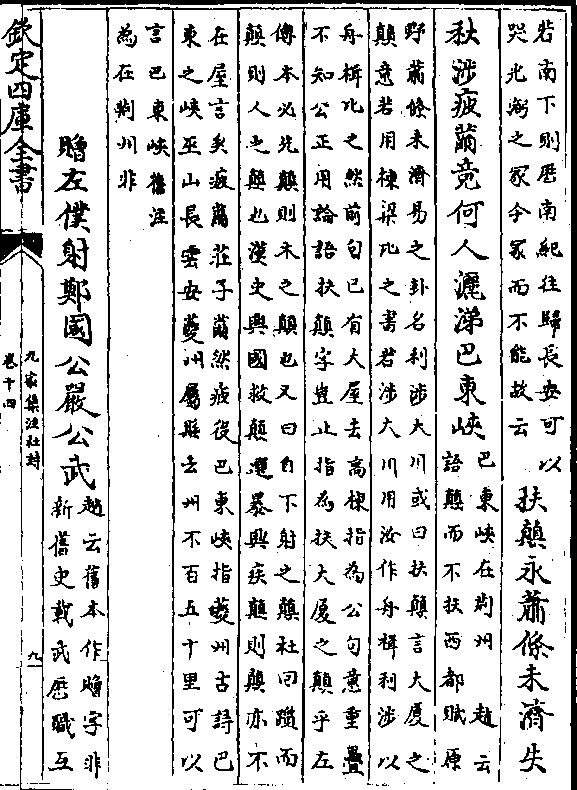 若南下則歷南紀往歸長安可以
哭光弼之冢今冢而不能故云
扶顛永蕭條未濟失
秋涉疲薾竟何人灑涕巴東峽
巴東峽在荆州 趙云
語顛而不扶西都賦原
野蕭條未濟易之卦名利涉大川或曰扶顛言大厦之
顛意若用棟梁比之書若涉大川用汝作舟楫利涉以
舟楫比之然前句已有大屋去高棟指為公句意重疊
不知公正用論語扶顛字豈止指為扶大厦之顛乎左
傳本必先顛則木之顛也又曰自下射之顛杜回躓而
顛則人之顛也漢史興國救顛還暴興疾顛則顛亦不
在屋言矣疲薾莊子薾然疲役巴東峽指夔州古詩巴
東之峽巫山長雲安夔州屬縣去州不百五十里可以
言巴東峽舊注
為在荆州非
贈左僕射鄭國公嚴公武
趙云舊本作贈字非
新舊史載武歷職互
欽定四庫全書
九家集注杜詩
卷十四
九